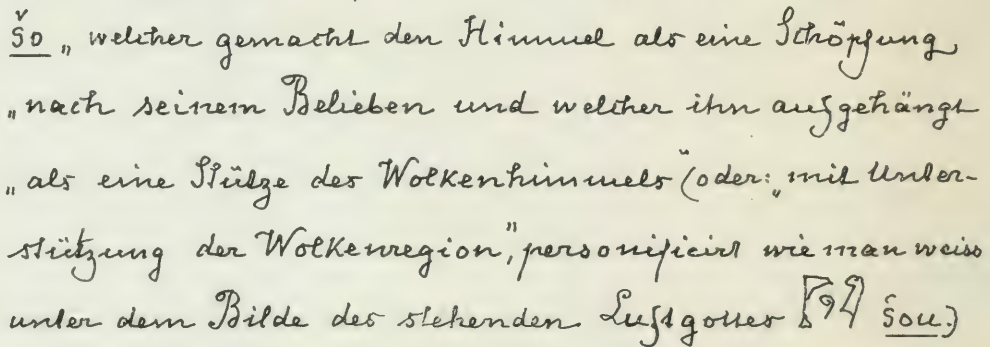 šo „welcher gemacht den Himmel als eine Schöpfung
„nach seinem Belieben und welcher ihn aufgehängt
„als eine Stütze des Wolkenhimmels“ (oder: „mit Unter-
stützung der Wolkenregion“, personificirt wie man weiss
unter dem Bilde des stehenden Luftgottes šou.)